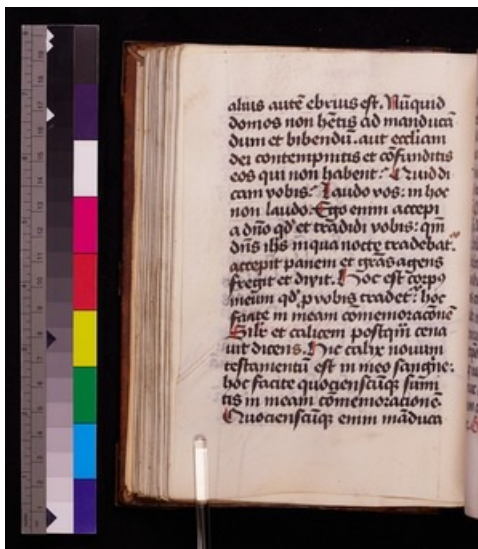 alius autē ebrius est. Nūquid
domos non hētis ad manducā
dum et bibendū. aut ecc̄liam
dei contempnitis et cōfunditis
eos qui non habent: Quid di
cam vobis: Laudo vos: in hoc
non laudo. Ego enim accepi
a dn̄o qd̛ et tradidi vobis: qm̄
dn̄s ihs in qua nocte tradebat̛
accepit panem et grās agens
fregit et dixit. Hoc est corpꝰ
meum qd̛ p vobis tradet̛: hoc
facite in meam comemoracōnē
Silr et calicem postqm̄ cena
uit dicens. Hic calix nouum
testamentū est in meo sangīne:
hoc facite quociensciūqꝫ sumi
tis in meam cōmemoratione.
Quociensciūqꝫ enim māduca